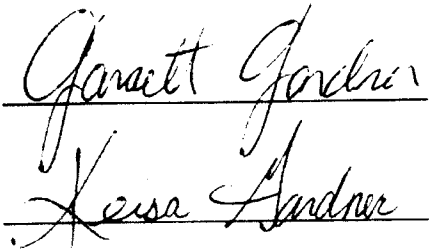 Garrett Gardner
Keisa Gardner